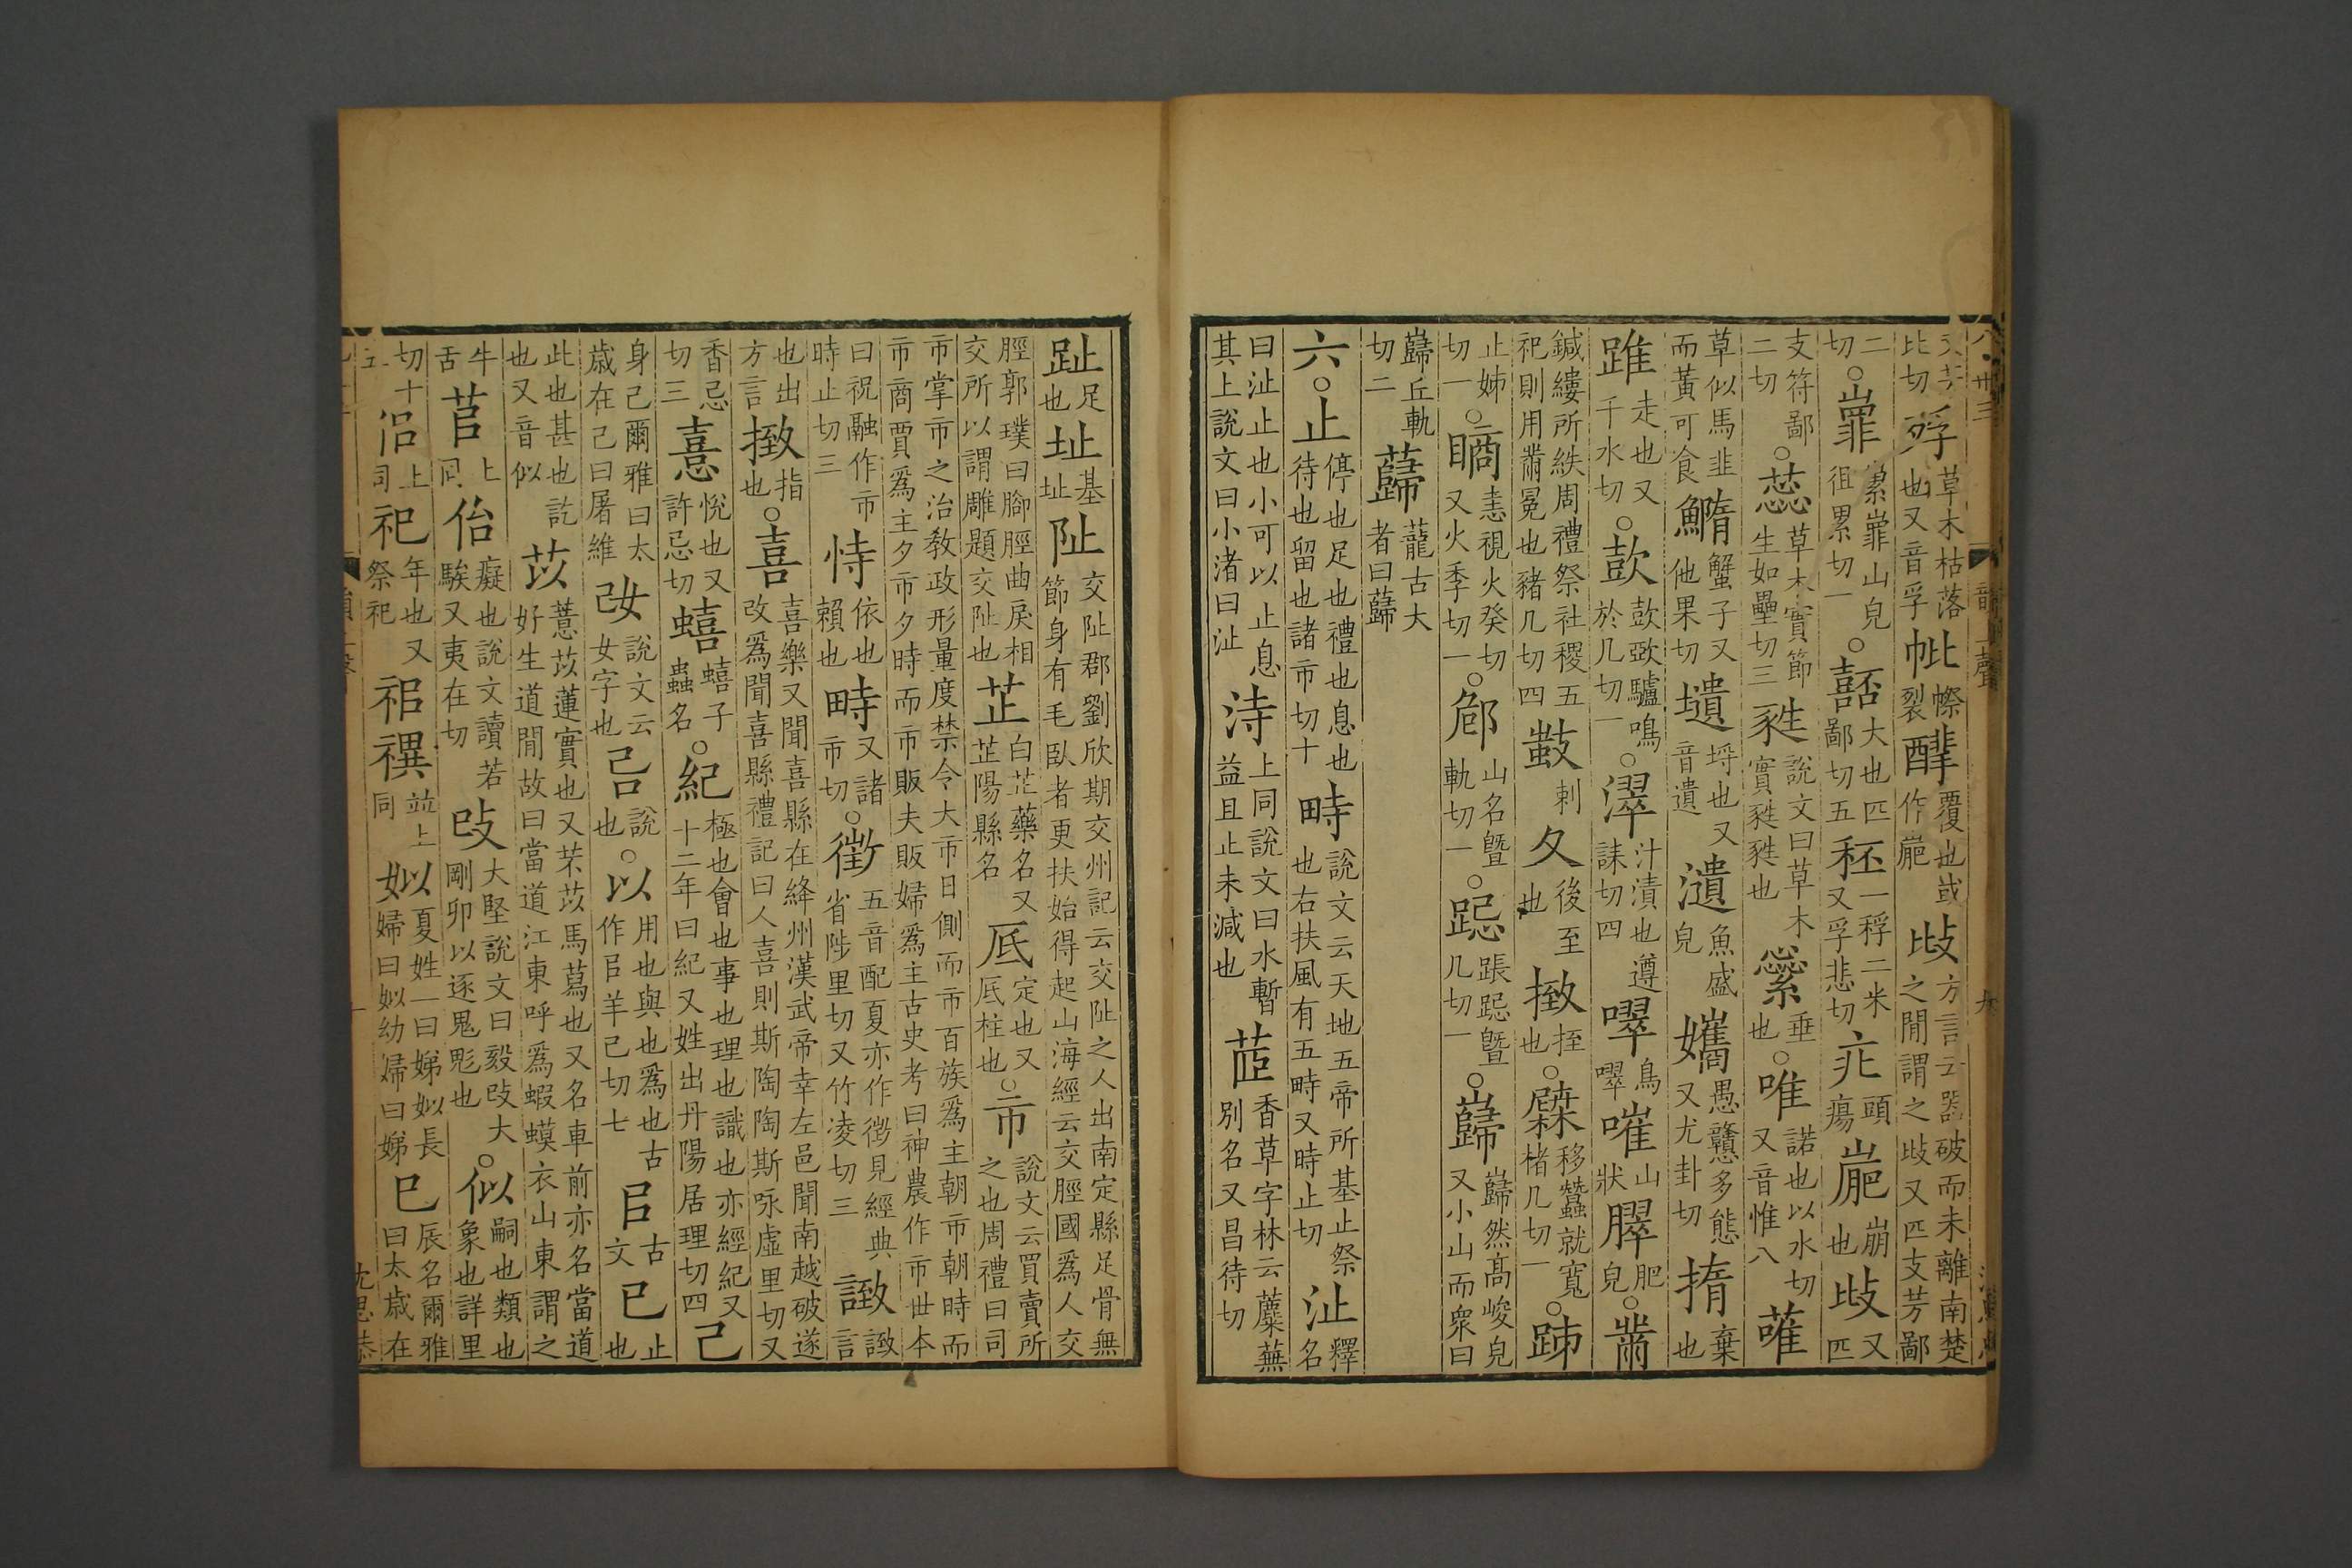 比切殍草木枯落也又音孚裂覆也或作嶏歧方言云器破而未離南楚之閒謂之歧又匹支芳鄙
二切○嶵山皃徂累切一○嚭大也匹鄙切五秠一稃二米又孚悲切疕頭瘍嶏崩也歧又匹
支符鄙二切○蕊草木實節生如壘切三甤說文曰草木實甤甤也繠垂也○唯諾也以水切又音惟八蓶
草似馬韭而黃可食䲊蟹子又他果切壝埒也又音遺瀢魚盛皃孈愚戇多態又尤卦切撱棄也
踓走也又千水切○驢鳴於几切一○濢汁漬也遵誄切四噿鳥噿嗺山狀脺肥皃○黹
鍼縷所紩周禮祭社稷五祀則用黹冕也豬几切四刺夂後至也㨖抂也○移蠶就寬楮几切一○
止姊切一○恚視火癸切又火季切一○山名曁軌切一○跽曁几切一○巋巋然高峻皃又小山而衆曰
巋丘軌切二蘬蘢古大者曰蘬
六○止停也足也禮也息也待也留也諸市切十畤說文云天地五帝所基止祭也右扶風有五畤又時止切沚釋名
曰沚止也小可以止息其上說文曰小渚曰沚洔上同說文曰水暫益且止未減也茝香草字林云蘪蕪別名又昌待切
趾足也址基址阯交阯郡劉欣期交州記云交阯之人出南定縣足骨無節身有毛臥者更扶始得起山海經云交脛國爲人交
脛郭璞曰腳脛曲戾相交所以謂雕題交阯也芷白芷藥名又芷陽縣名厎定也又厎柱也○市說文云買賣所之也周禮曰司
市掌市之治教政形量度禁令大市日側而市百族爲主朝市朝時而市商賈爲主夕市夕時而市販夫販婦爲主古史考曰神農作市世本
曰祝融作市時止切三恃依也賴也畤又諸市切○徵五音配夏亦作徴見經典省陟里切又竹凌切三譺言
也出方言㨖指也○喜喜樂又聞喜縣在絳州漢武帝幸左邑聞南越破遂改爲聞喜縣禮記曰人喜則斯陶陶斯咏虛里切又
香忌切三憙悅也又許忌切蟢蟢子蟲名○紀極也會也事也理也識也亦經紀又十二年曰紀又姓出丹陽居理切四己
身己爾雅曰太歲在己曰屠維改女說文云女字也㠱說也○以用也與也爲也古作㠯羊己切七㠯古文已止也
此也甚也訖也又音似苡薏苡蓮實也又芣苡馬舄也又名車前亦名當道好生道閒故曰當道江東呼爲蝦蟆衣山東謂之
牛舌苢上同佁癡也說文讀若騃又夷在切攺大堅說文曰毅攺大剛卯以逐鬼鬽也○似嗣也類也象也詳里
切十五㑌上同祀年也又祭祀禩並上同姒夏姓一曰娣姒長婦曰姒幼婦曰娣巳辰名爾雅曰太歲在